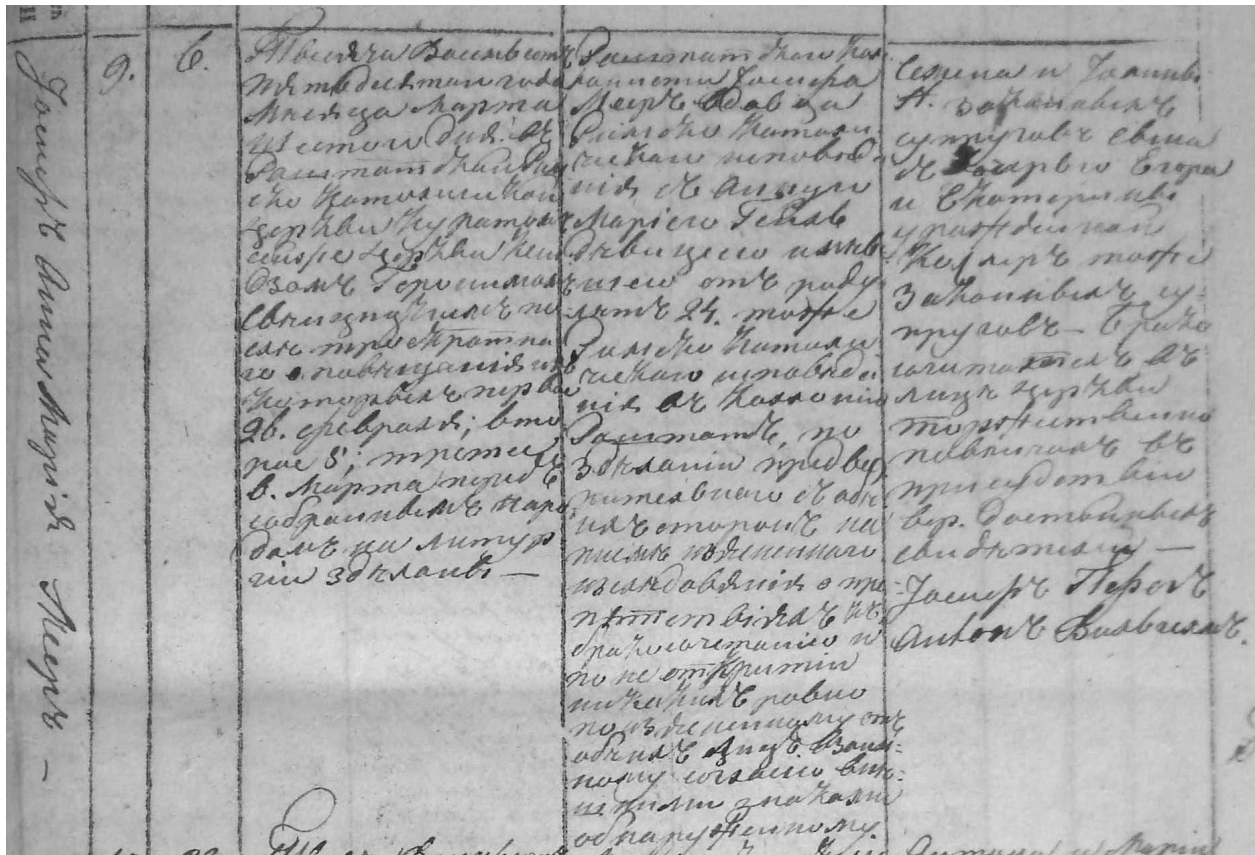 Іосифъ Анна Марія Мееръ —
9.
6.
Тысяча Восемьсотъ
пятьдесятаго года
Мѣсяца Марта
шестого дня: въ
Раштатской Рим-
ско Католической
церкви Куратомъ
сей же церкви Ксен-
дзомъ Геросимомъ
по-
слѣ троекратна-
го оповѣщенія изъ
которыхъ первое
26. февраля; вто-
рое 5; третее
6. Марта передъ
собраннымъ Наро-
домъ на литур-
гіи здѣланы —
Раштатскаго Ко-
лониста Іосифа
Меера вдовца
Римско Католи-
ческаго исповѣда-
нія съ Анною
Маріею Гейль
дѣвицею имѣв-
шею отъ роду
лѣтъ 24. тоже
Римско Католи-
ческаго исповѣда-
нія въ Колоніи
Раштатъ, по
здѣланіи предвар-
ительнаго съ обѣ-
ихъ сторонъ на
письмѣ изъясненнаго
изслѣдованія о пре-
пятствіяхъ къ
бракосочетанію и
по не открытіи
никакихъ равно
по изъясненному отъ
обѣихъ лицъ взаи-
ному согласію внѣ-
шними знаками
обнаруженному
Семена и
законныхъ
супруговъ сына
съ дочерью Егора
и Екатерины
урожденной
тоже
законныхъ су-
пруговъ — брако
сочиталъ и въ
лицѣ церкви
торжественно
повѣнчалъ въ
присудствіи
вѣр. достойныхъ
свидѣтелей —
Іосифъ
Антонъ